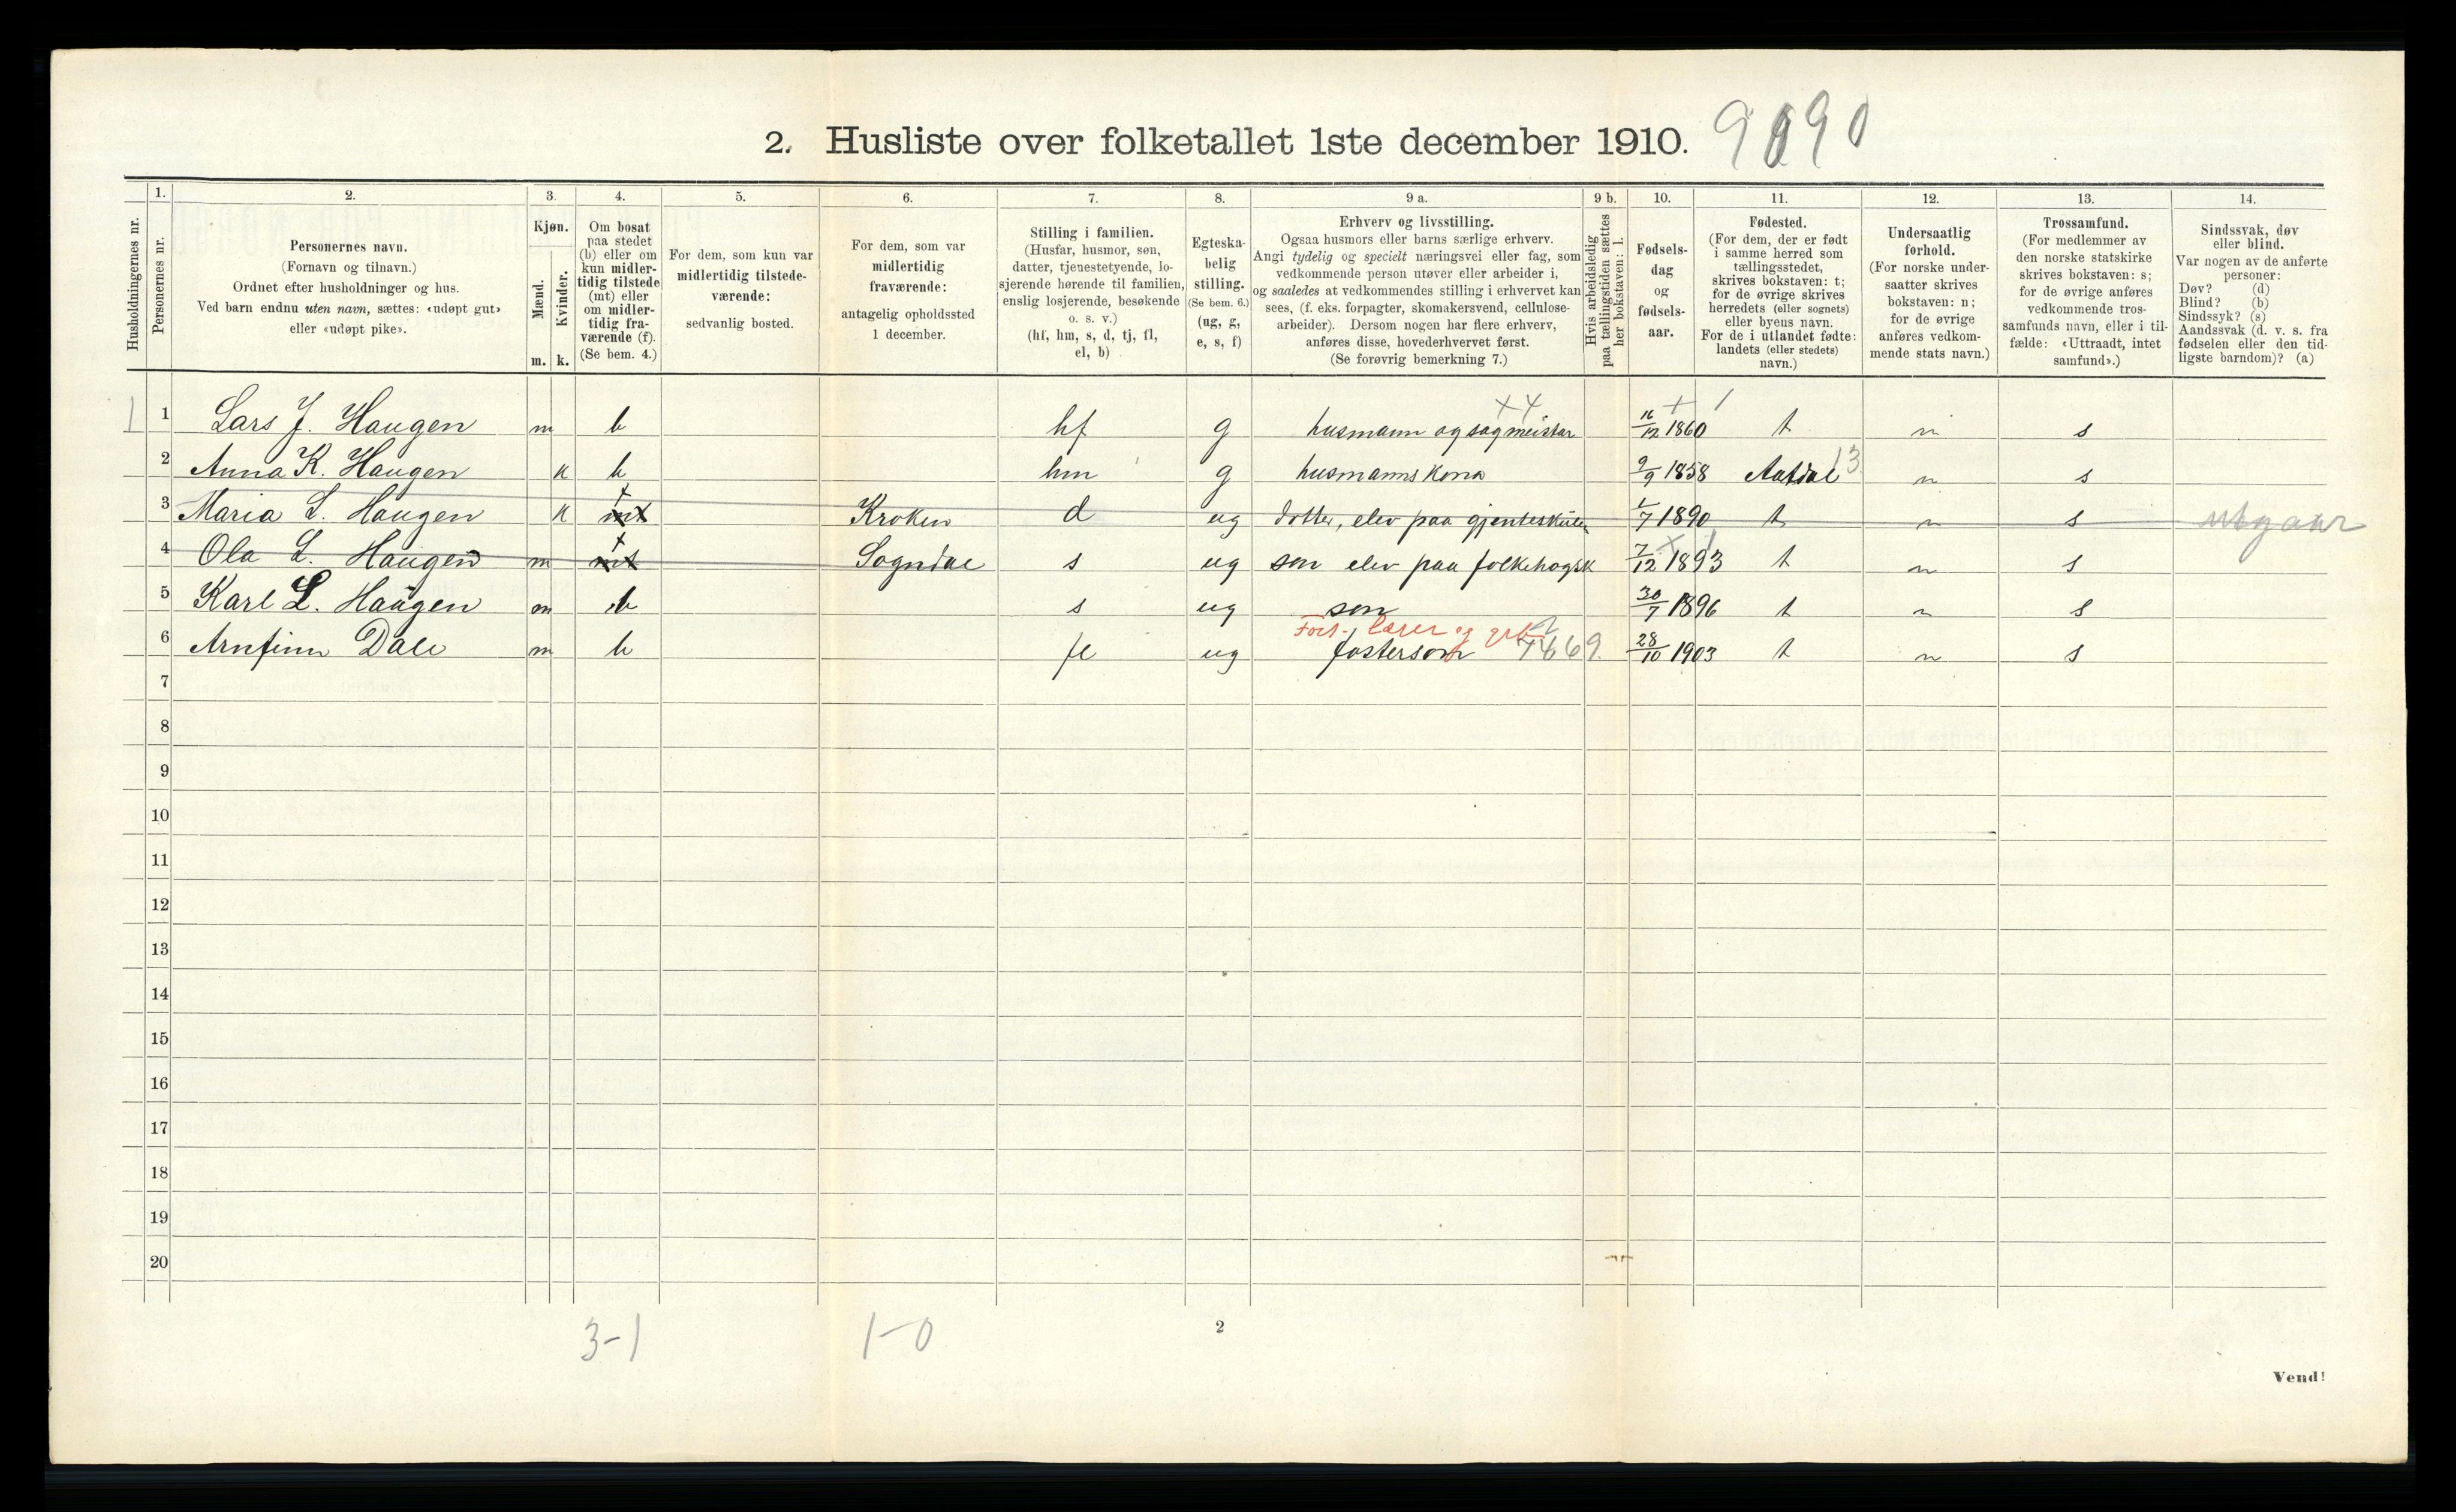 2. Husliste over folketallet 1ste december 1910. 9090
1. 2. 3. 4. 5. 6. 7. 8. 9 a. 9 b. 10. 11. 12. 13. 14.
Husholdningernes nr.
Personernes nr.
Personernes navn.
(Fornavn og tilnavn.)
Ordnet efter husholdninger og hus.
Ved barn endnu uten navn, sættes: «udøpt gut»
eller «udøpt pike».
Kjøn.
Mænd.
Kvinder.
m. k.
Om bosat
paa stedet
(b) eller om
kun midler-
tidig tilstede
(mt) eller
om midler-
tidig fra-
værende (f).
(Se bem. 4.)
For dem, som kun var
midlertidig tilstede-
værende:
sedvanlig bosted.
For dem, som var
midlertidig
fraværende:
antagelig opholdssted
1 december.
Stilling i familien.
(Husfar, husmor, søn,
datter, tjenestetyende, lo-
sjerende hørende til familien,
enslig losjerende, besøkende
o. s. v.)
(hf, hm, s, d, tj, fl,
el, b)
Egteska-
belig
stilling.
(Se bem. 6.)
(ug, g,
e, s, f)
Erhverv og livsstilling.
Ogsaa husmors eller barns særlige erhverv.
Angi tydelig og specielt næringsvei eller fag, som
vedkommende person utøver eller arbeider i,
og saaledes at vedkommendes stilling i erhvervet kan
sees, (f. eks. forpagter, skomakersvend, cellulose-
arbeider). Dersom nogen har flere erhverv,
anføres disse, hovederhvervet først.
(Se forøvrig bemerkning 7.)
Hvis arbeidsledig
paa tællingstiden sættes
her bokstaven: l.
Fødsels-
dag
og
fødsels-
aar.
Fødested.
(For dem, der er født
i samme herred som
tællingsstedet,
skrives bokstaven: t;
for de øvrige skrives
herredets (eller sognets)
eller byens navn.
For de i utlandet fødte:
landets (eller stedets)
navn.)
Undersaatlig
forhold.
(For norske under-
saatter skrives
bokstaven: n;
for de øvrige
anføres vedkom-
mende stats navn.)
Trossamfund.
(For medlemmer av
den norske statskirke
skrives bokstaven: s;
for de øvrige anføres
vedkommende tros-
samfunds navn, eller i til-
fælde: «Uttraadt, intet
samfund».)
Sindssvak, døv
eller blind.
Var nogen av de anførte
personer:
Døv? (d)
Blind? (b)
Sindssyk? (s)
Aandssvak (d. v. s. fra
fødselen eller den tid-
ligste barndom)? (a)
x4 + 1
1 1 Lars J. Haugen m b hf g husmann og sagmeistar 16/12 1860 t n s
2 Anna K. Haugen k b hm g husmanns kona 9/9 1858 Aardal 13 n s
3 Maria L. Haugen k mt x Kroken d ug dotter, elev paa gjenteskulen 1/7 1890 t n s utgaar
4 Ola L. Haugen m mt x Sogndal s ug son elev paa folkehogsk 7/12 1893 t n s
5 Karl L. Haugen m b s ug son 30/7 1896 t n s
Fors. lærer og grb.
6 Arnfinn Dale m b fl ug fosterson 7669. 28/10 1903 t n s
7
8
9
10
11
12
13
14
15
16
17
18
19
20
3-1 1-0 2
Vend!